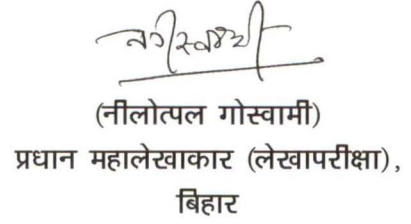 (नीलोत्पल गोस्वामी)
प्रधान महालेखाकार (लेखापरीक्षा),
बिहार